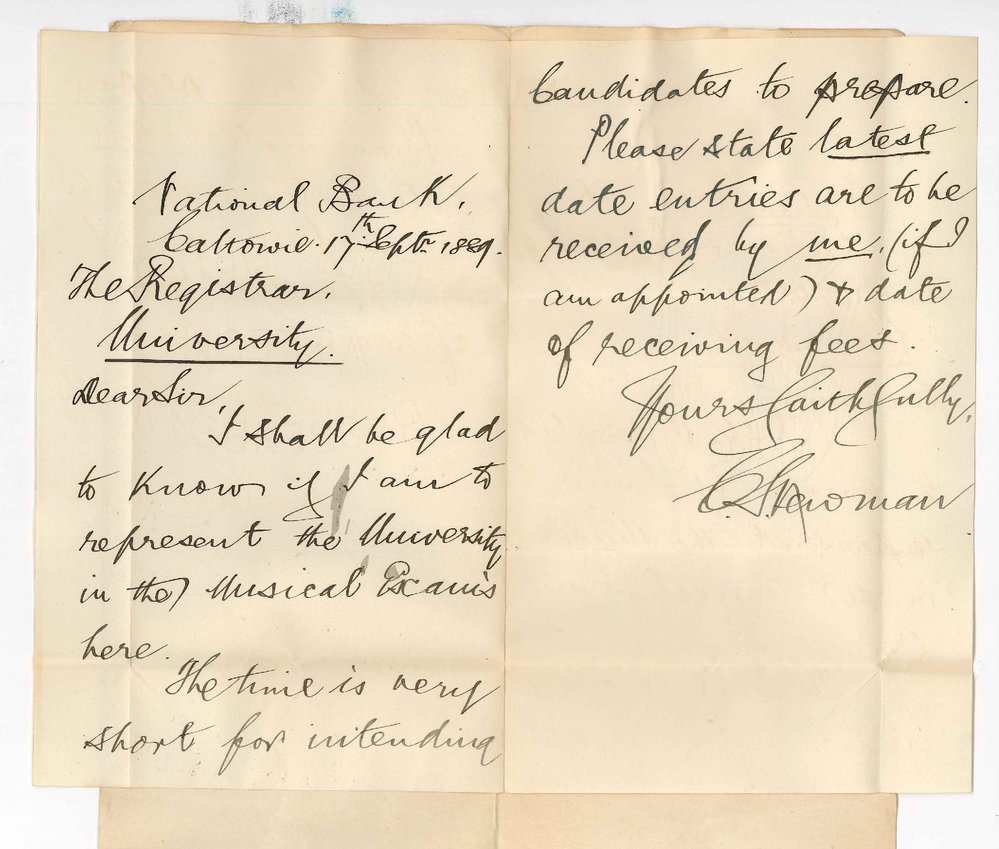 National Bank,
Caltowie. 17th Septr 1889.
The Registrar,
University.
Dear Sir,
I shall be glad
to know if I am to
represent the University
in the Musical Exam's
here.
The time is very
short for intending
Candidates to prepare.
Please state latest
date entries are to be
received by me, (if I
am appointed) & date
of receiving fees.
Yours faithfully,
Newman